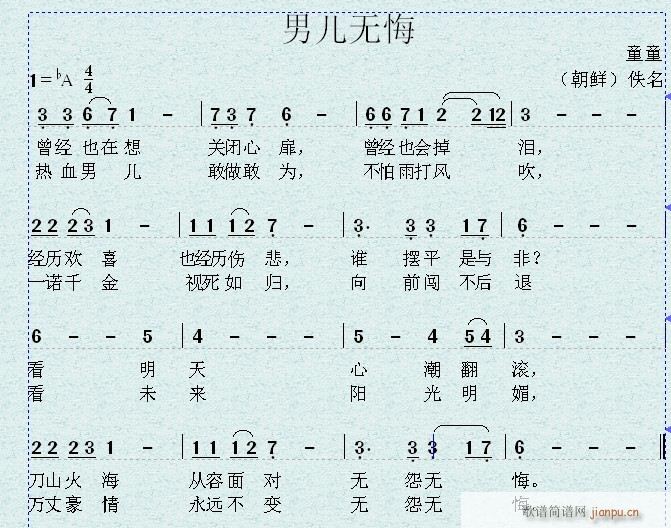 男儿无悔
童童
1=ᵇA 4/4
（朝鲜）佚名
3 3 6 7 1 - | 7 3 7 6 - | 6 6 7 1 2 2 1 2 | 3 - - -
曾经 也在 想 关闭心 扉， 曾经也会掉 泪，
热血男 儿 敢做敢 为， 不怕雨打风 吹，
2 2 2 3 1 - | 1 1 1 2 7 - | 3· 3 3 1 7 | 6 - - -
经历欢 喜 也经历伤 悲， 谁 摆平 是与 非？
一诺千 金 视死如 归， 向 前闯 不后 退
6 - - 5 | 4 - - - | 5 - 4 5 4 | 3 - - -
看 明 天 心 潮 翻 滚，
看 未 来 阳 光 明 媚，
2 2 2 3 1 - | 1 1 1 2 7 - | 3· 3 3 1 7 | 6 - - -
刀山火 海 从容面 对 无 怨无 悔。
万丈豪 情 永远不 变 无 怨无 悔
歌谱简谱网 jianpu.cn